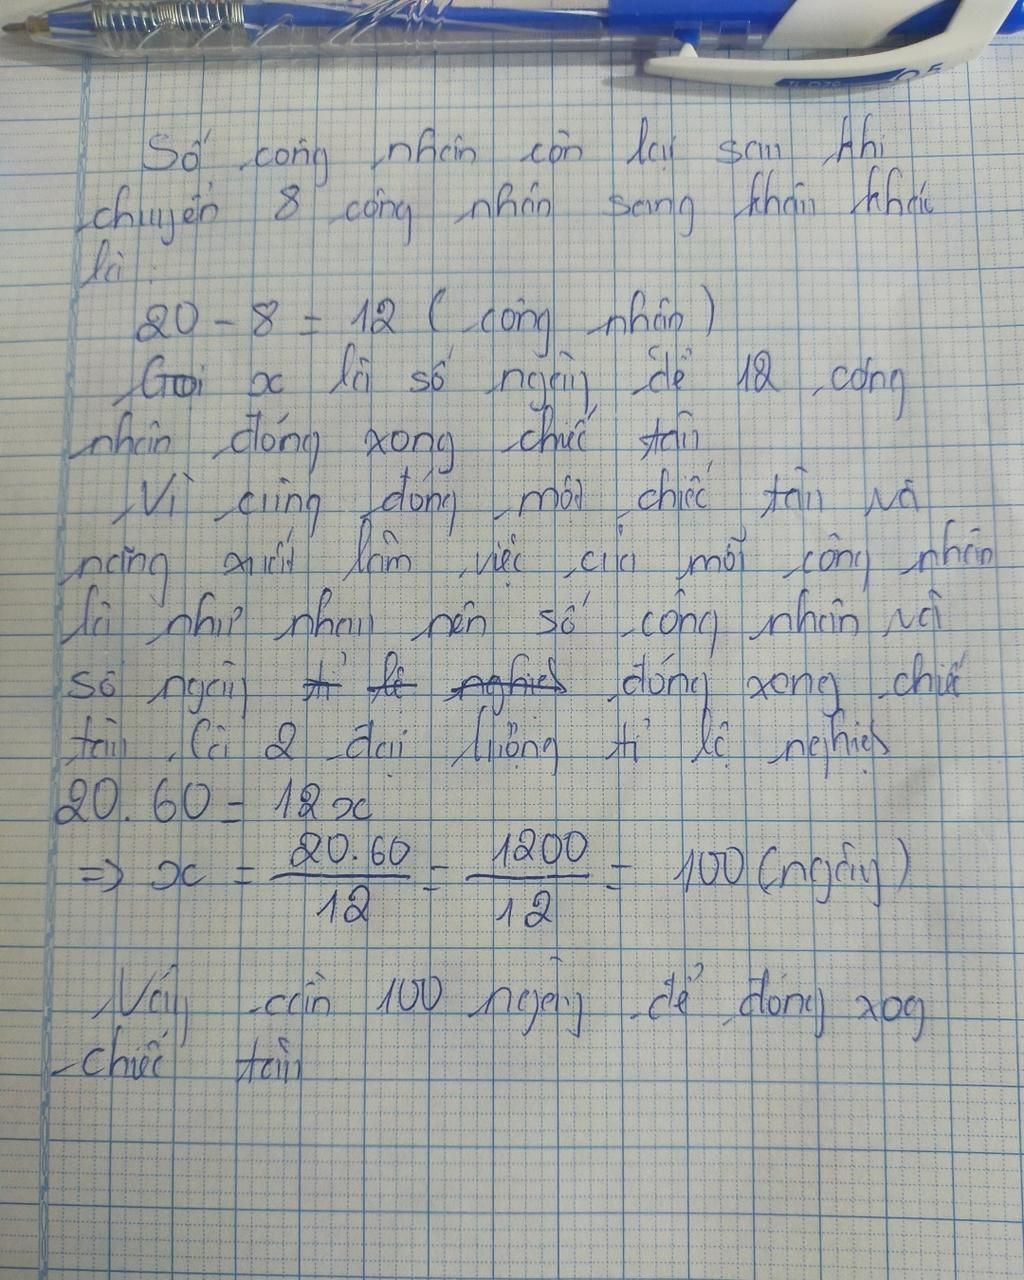 Số công nhân còn lại sau khi
chuyển 8 công nhân sang khâu khác
là:
20 - 8 = 12 ( công nhân )
Gọi x là số ngày để 12 công
nhân đóng xong chiếc tàu
Vì cùng đóng một chiếc tàu và
năng xuất làm việc của mỗi công nhân
là như nhau nên số công nhân và
số ngày tỉ lệ nghịch đóng xong chiếc
tàu là 2 đại lượng tỉ lệ nghịch
20. 60 = 12x
=> x = 20.60/12 = 1200/12 = 100 (ngày)
Vậy cần 100 ngày để đóng xog
chiếc tàu